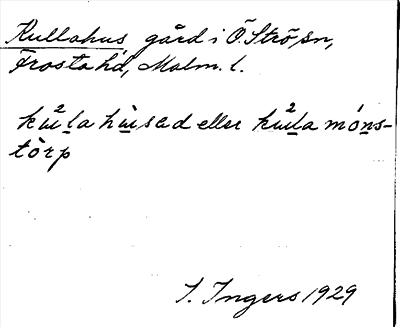 Kullahus, gård i Ö. Strö, sn,
Frosta hd, Malm. l.
kɯ²l̲a hɯ̀səd eller kɯ²l̲a móns-
tòrp
I. Ingers 1929